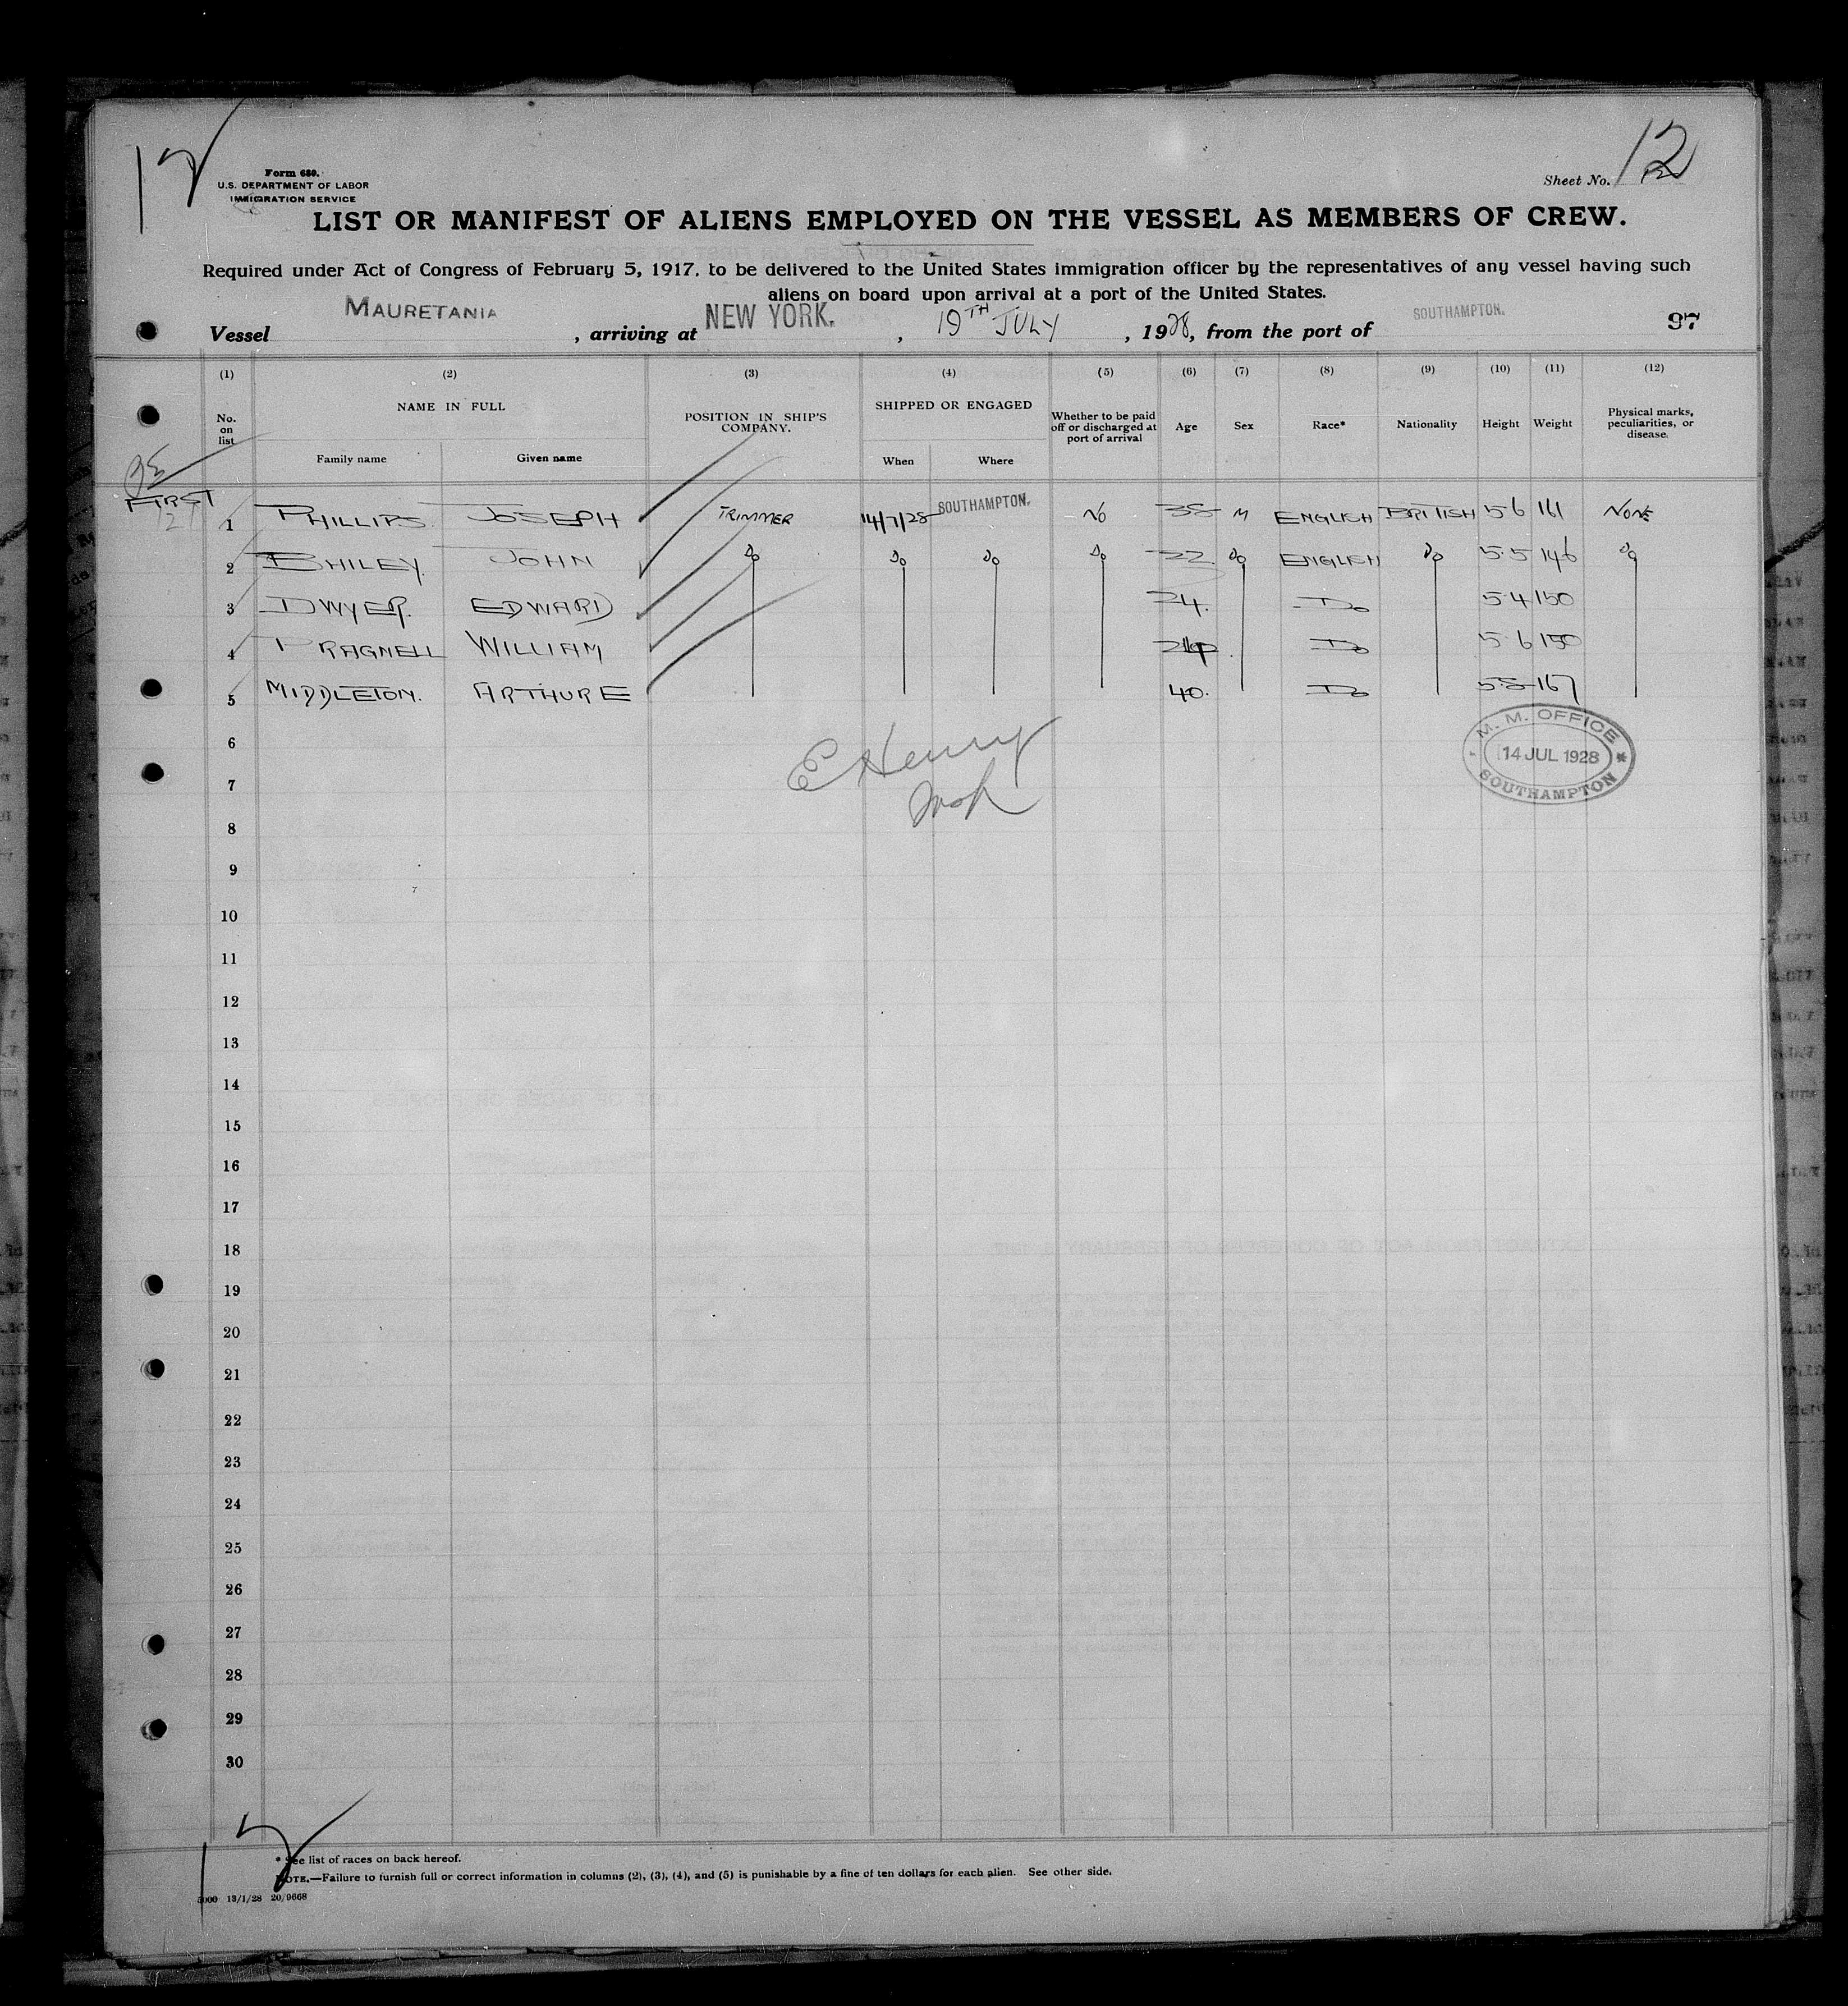 12
Form 680.
U.S. DEPARTMENT OF LABOR
IMMIGRATION SERVICE
Sheet No. 12
LIST OR MANIFEST OF ALIENS EMPLOYED ON THE VESSEL AS MEMBERS OF CREW.
Required under Act of Congress of February 5, 1917, to be delivered to the United States immigration officer by the representatives of any vessel having such
aliens on board upon arrival at a port of the United States.
Vessel MAURETANIA, arriving at NEW YORK., 19TH JULY, 1928, from the port of SOUTHAMPTON. 97
(1) (2) (3) (4) (5) (6) (7) (8) (9) (10) (11) (12)
No. on list NAME IN FULL POSITION IN SHIP'S COMPANY. SHIPPED OR ENGAGED Whether to be paid off or discharged at port of arrival Age Sex Race* Nationality Height Weight Physical marks, peculiarities, or disease.
Family name Given name When Where
FIRST
1 PHILLIPS. JOSEPH TRIMMER 14/7/28 SOUTHAMPTON. NO 38 M ENGLISH BRITISH 5 6 161 NONE
2 BAILEY. JOHN Do Do Do Do 22 Do ENGLISH Do 5.5 146 Do
3 DWYER. EDWARD 24. Do 5.4 150
4 PRAGNELL WILLIAM Do 5 6 150
5 MIDDLETON. ARTHUR E 40. Do 5.8 167
E Henry
M.M. OFFICE
14 JUL 1928
SOUTHAMPTON
6
7
8
9
10
11
12
13
14
15
16
17
18
19
20
21
22
23
24
25
26
27
28
29
30
12
* See list of races on back hereof.
NOTE.—Failure to furnish full or correct information in columns (2), (3), (4), and (5) is punishable by a fine of ten dollars for each alien. See other side.
5000 13/1/28 20/9668